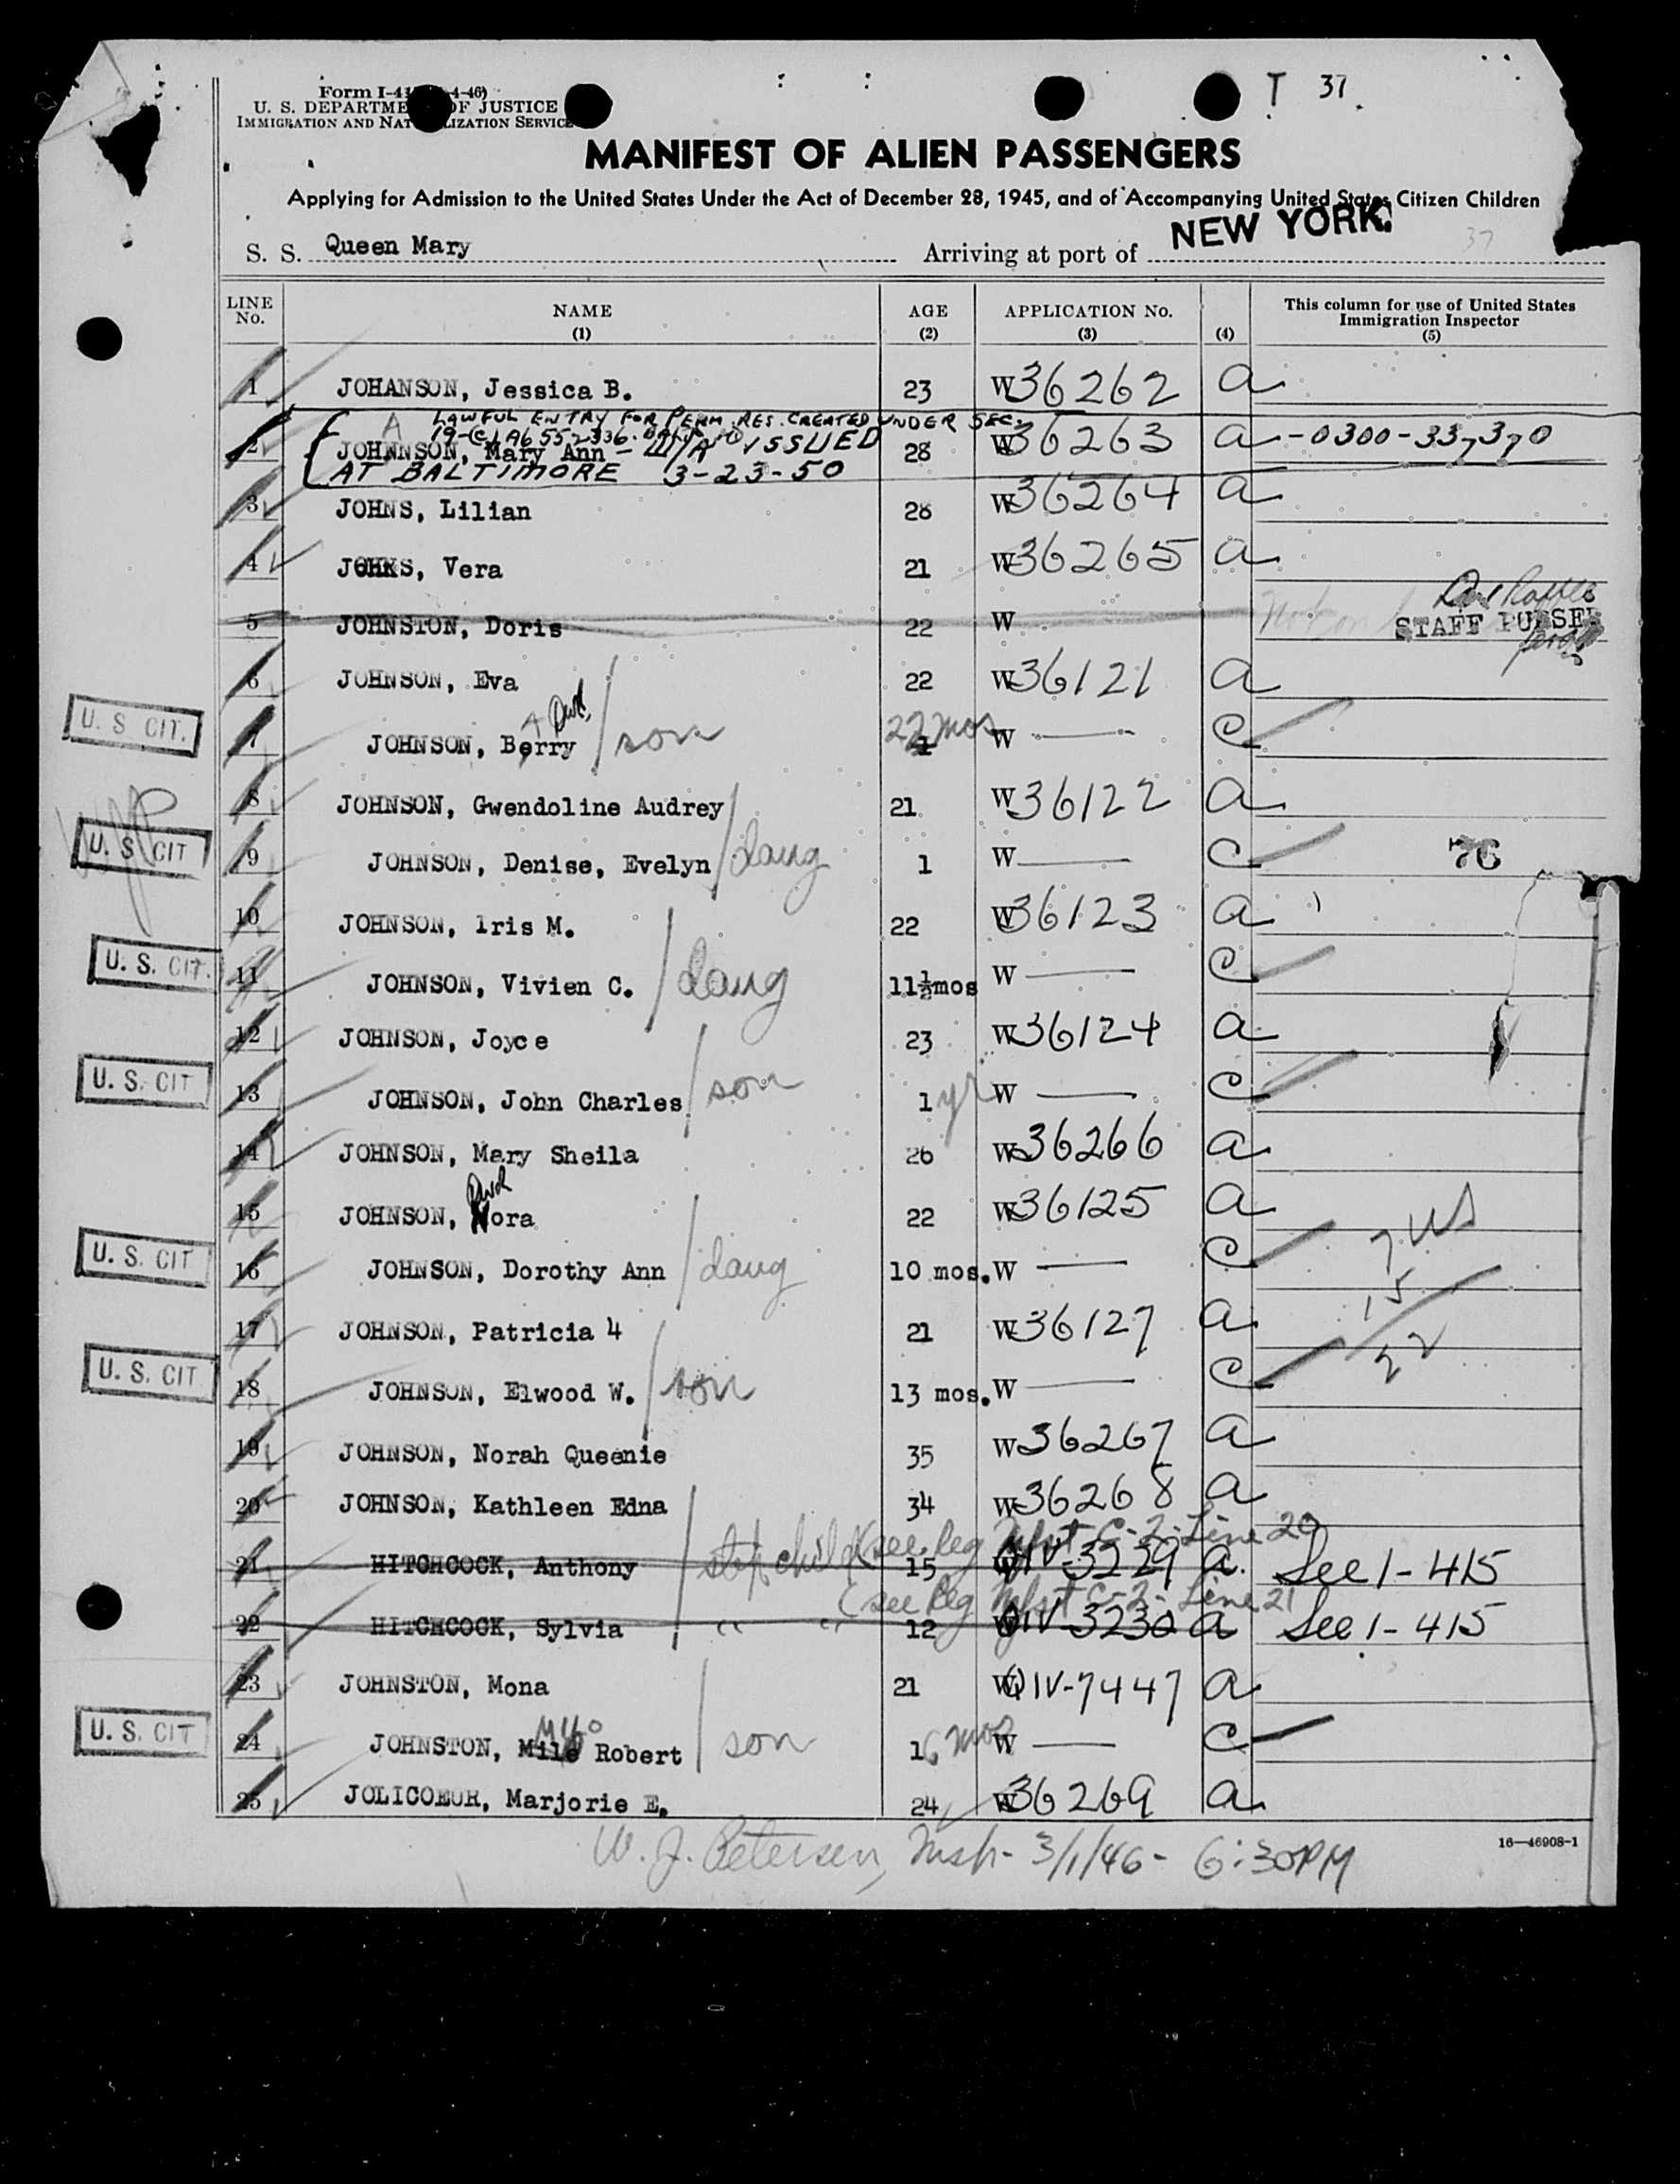 T 37.
U. S. DEPARTMENT OF JUSTICE
IMMIGRATION AND NATURALIZATION SERVICE
MANIFEST OF ALIEN PASSENGERS
Applying for Admission to the United States Under the Act of December 28, 1945, and of Accompanying United States Citizen Children
S. S. Queen Mary Arriving at port of NEW YORK. 37
LINE No. NAME (1) AGE (2) APPLICATION No. (3) (4) This column for use of United States Immigration Inspector (5)
1 JOHANSON, Jessica B. 23 W36262 a
A LAWFUL ENTRY FOR PERM. RES. CREATED UNDER SEC.
2 JOHNNSON, Mary Ann - ISSUED 28 W36263 a -0300-337370
AT BALTIMORE 3-23-50
3 JOHNS, Lilian 28 W36264 a
4 JOHNS, Vera 21 W36265 a
5 JOHNSTON, Doris 22 W STAFF PURSER
6 JOHNSON, Eva 22 W36121 a
U. S. CIT. 7 JOHNSON, Berry / son 22 mos W — c
8 JOHNSON, Gwendoline Audrey 21 W36122 a
U. S. CIT 9 JOHNSON, Denise, Evelyn / daug 1 W — c 76
10 JOHNSON, Iris M. 22 W36123 a
U. S. CIT. 11 JOHNSON, Vivien C. / daug 11½mos W — c
12 JOHNSON, Joyce 23 W36124 a
U. S. CIT 13 JOHNSON, John Charles / son 1 yr W — c
14 JOHNSON, Mary Sheila 26 W36266 a
15 JOHNSON, Nora 22 W36125 a
7 US
U. S. CIT 16 JOHNSON, Dorothy Ann / daug 10 mos. W — c
15
17 JOHNSON, Patricia 4 21 W36127 a
22
U. S. CIT 18 JOHNSON, Elwood W. / son 13 mos. W — c
19 JOHNSON, Norah Queenie 35 W36267 a
20 JOHNSON, Kathleen Edna 34 W36268 a
(see Reg Mfst C-2-Line 20
21 HITCHCOCK, Anthony / step child 15 QIV-3229 a. See 1-415
(see Reg Mfst C-2-Line 21
22 HITCHCOCK, Sylvia " " 12 QIV-3230 a See 1-415
23 JOHNSTON, Mona 21 QIV-7447 a
U. S. CIT 24 JOHNSTON, Milo Robert / son 16 mos W — c
25 JOLICOEUR, Marjorie E. 24 W36269 a
16—46908-1
W. J. Petersen, Insp- 3/1/46- 6:30PM